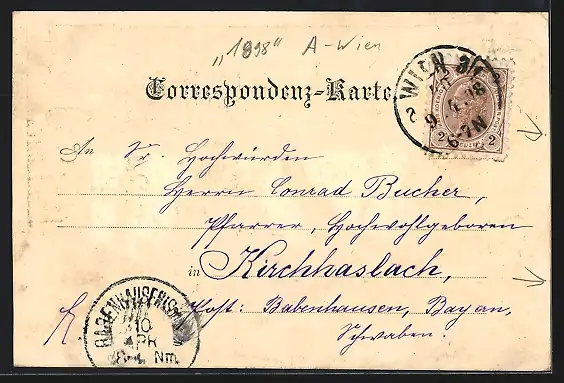 „1898" A-Wien
Correspondenz-Karte
WIEN
9 4 98
6-7 N
2 2
An Sr. Hochwürden
Herrn Conrad Bucher,
Pfarrer, Hochwohlgeboren
in Kirchhaslach,
Post: Babenhausen, Bayern,
Schwaben.
BABENHAUSEN
10
APR
Nm